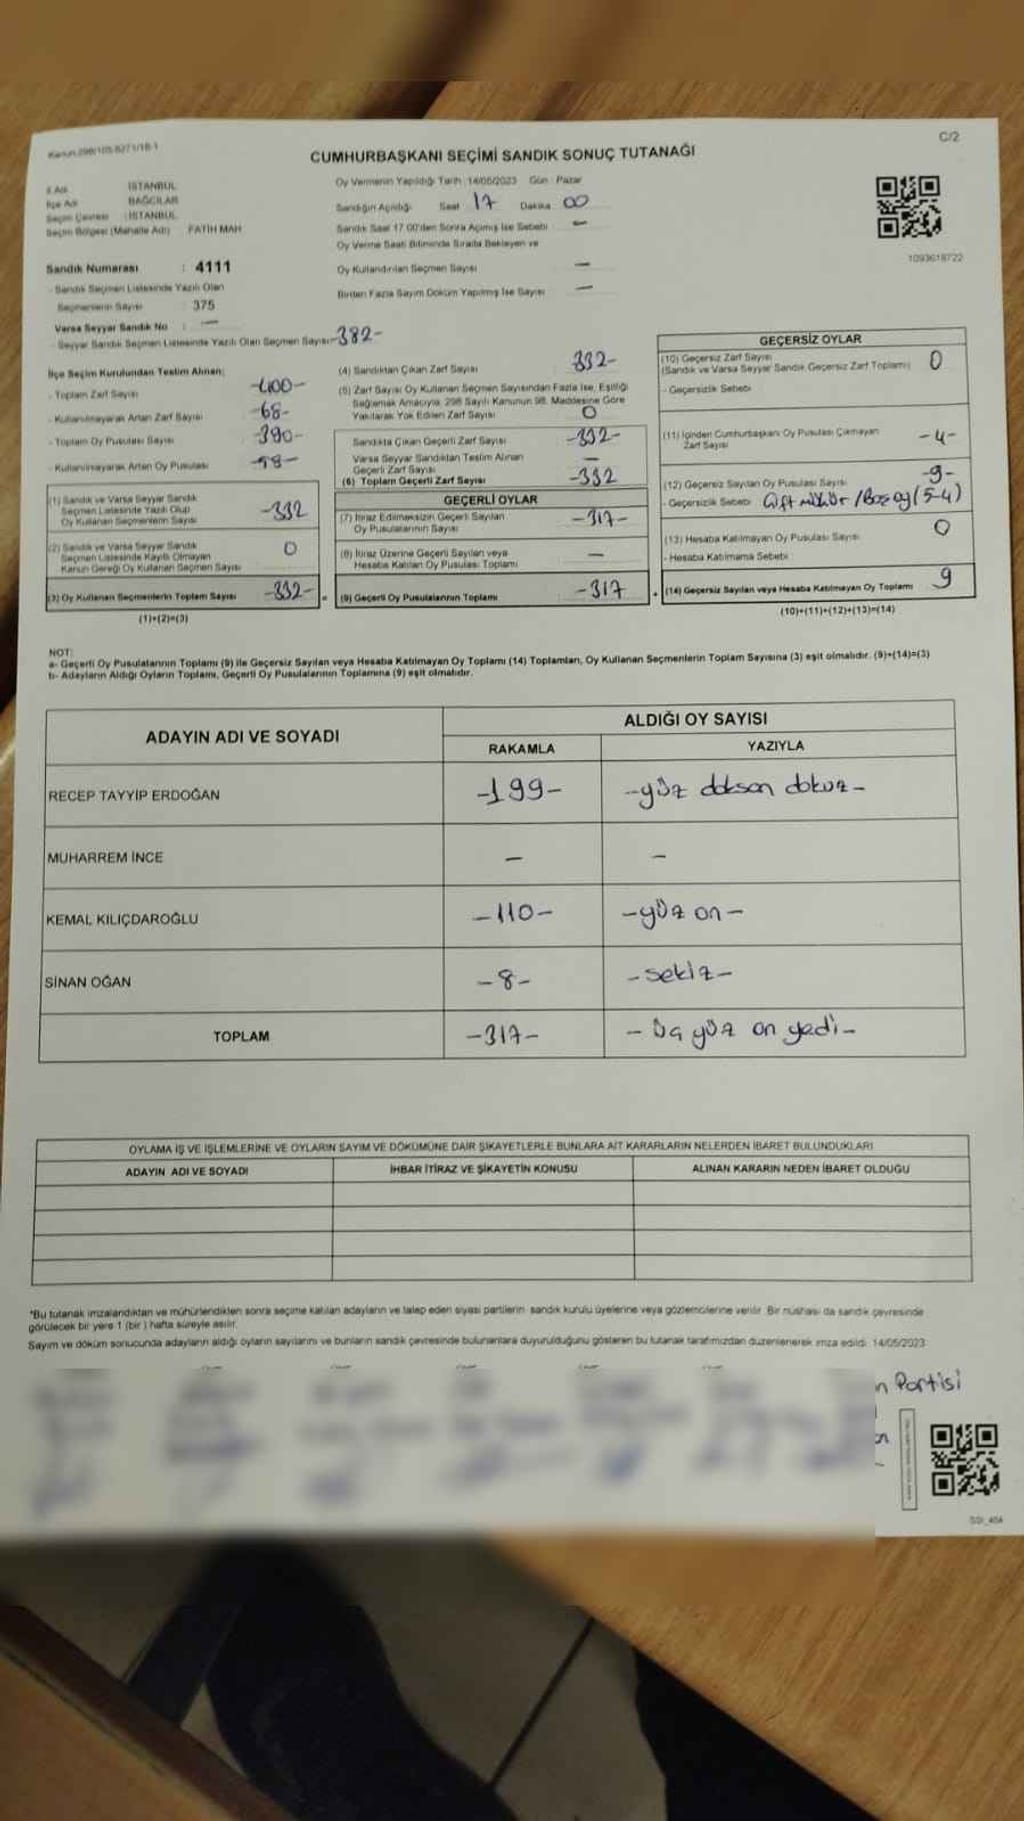 C/2
CUMHURBAŞKANI SEÇİMİ SANDIK SONUÇ TUTANAĞI
İl Adı : İSTANBUL
İlçe Adı : BAĞCILAR
Seçim Çevresi : İSTANBUL
Seçim Bölgesi (Mahalle Adı) FATİH MAH
Sandık Numarası : 4111
- Sandık Seçmen Listesinde Yazılı Olan
Seçmenlerin Sayısı : 375
Varsa Seyyar Sandık No : —
- Seyyar Sandık Seçmen Listesinde Yazılı Olan Seçmen Sayısı -382-
Oy Vermenin Yapıldığı Tarih :14/05/2023 Gün : Pazar
Sandığın Açıldığı Saat 17 Dakika 00
Sandık Saat 17.00'den Sonra Açılmış İse Sebebi —
Oy Verme Saati Bitiminde Sırada Bekleyen ve
Oy Kullandırılan Seçmen Sayısı —
Birden Fazla Sayım Döküm Yapılmış İse Sayısı —
1093618722
İlçe Seçim Kurulundan Teslim Alınan;
- Toplam Zarf Sayısı -400-
- Kullanılmayarak Artan Zarf Sayısı -68-
- Toplam Oy Pusulası Sayısı -390-
- Kullanılmayarak Artan Oy Pusulası
(1) Sandık ve Varsa Seyyar Sandık
Seçmen Listesinde Yazılı Olup
Oy Kullanan Seçmenlerin Sayısı -332
(2) Sandık ve Varsa Seyyar Sandık
Seçmen Listesinde Kayıtlı Olmayan
Kanun Gereği Oy Kullanan Seçmen Sayısı 0
(3) Oy Kullanan Seçmenlerin Toplam Sayısı -332-
(1)+(2)=(3)
(4) Sandıktan Çıkan Zarf Sayısı 332-
(5) Zarf Sayısı Oy Kullanan Seçmen Sayısından Fazla İse, Eşitliği
Sağlamak Amacıyla, 298 Sayılı Kanunun 98. Maddesine Göre
Yakılarak Yok Edilen Zarf Sayısı 0
Sandıkta Çıkan Geçerli Zarf Sayısı -332-
Varsa Seyyar Sandıktan Teslim Alınan
Geçerli Zarf Sayısı —
(6) Toplam Geçerli Zarf Sayısı -332
GEÇERLİ OYLAR
(7) İtiraz Edilmeksizin Geçerli Sayılan
Oy Pusulalarının Sayısı -317-
(8) İtiraz Üzerine Geçerli Sayılan veya
Hesaba Katılan Oy Pusulası Toplamı —
(9) Geçerli Oy Pusulalarının Toplamı -317
GEÇERSİZ OYLAR
(10) Geçersiz Zarf Sayısı
(Sandık ve Varsa Seyyar Sandık Geçersiz Zarf Toplamı) 0
- Geçersizlik Sebebi
(11) İçinden Cumhurbaşkanı Oy Pusulası Çıkmayan
Zarf Sayısı -4-
(12) Geçersiz Sayılan Oy Pusulası Sayısı -9-
- Geçersizlik Sebebi Çift mühür / Boş oy (5-4)
(13) Hesaba Katılmayan Oy Pusulası Sayısı 0
- Hesaba Katılmama Sebebi
(14) Geçersiz Sayılan veya Hesaba Katılmayan Oy Toplamı 9
(10)+(11)+(12)+(13)=(14)
NOT:
a- Geçerli Oy Pusulalarının Toplamı (9) ile Geçersiz Sayılan veya Hesaba Katılmayan Oy Toplamı (14) Toplamları, Oy Kullanan Seçmenlerin Toplam Sayısına (3) eşit olmalıdır. (9)+(14)=(3)
b- Adayların Aldığı Oyların Toplamı, Geçerli Oy Pusulalarının Toplamına (9) eşit olmalıdır.
ADAYIN ADI VE SOYADI
ALDIĞI OY SAYISI
RAKAMLA YAZIYLA
RECEP TAYYİP ERDOĞAN -199- -yüz doksan dokuz-
MUHARREM İNCE – –
KEMAL KILIÇDAROĞLU -110- -yüz on-
SİNAN OĞAN -8- -sekiz-
TOPLAM -317- -üç yüz on yedi-
OYLAMA İŞ VE İŞLEMLERİNE VE OYLARIN SAYIM VE DÖKÜMÜNE DAİR ŞİKAYETLERLE BUNLARA AİT KARARLARIN NELERDEN İBARET BULUNDUKLARI
ADAYIN ADI VE SOYADI İHBAR İTİRAZ VE ŞİKAYETİN KONUSU ALINAN KARARIN NEDEN İBARET OLDUĞU
*Bu tutanak imzalandıktan ve mühürlendikten sonra seçime katılan adayların ve talep eden siyasi partilerin sandık kurulu üyelerine veya gözlemcilerine verilir. Bir nüshası da sandık çevresinde
görülecek bir yere 1 (bir) hafta süreyle asılır.
Sayım ve döküm sonucunda adayların aldığı oyların sayılarını ve bunların sandık çevresinde bulunanlara duyurulduğunu gösteren bu tutanak tarafımızdan düzenlenerek imza edildi. 14/05/2023
n Partisi